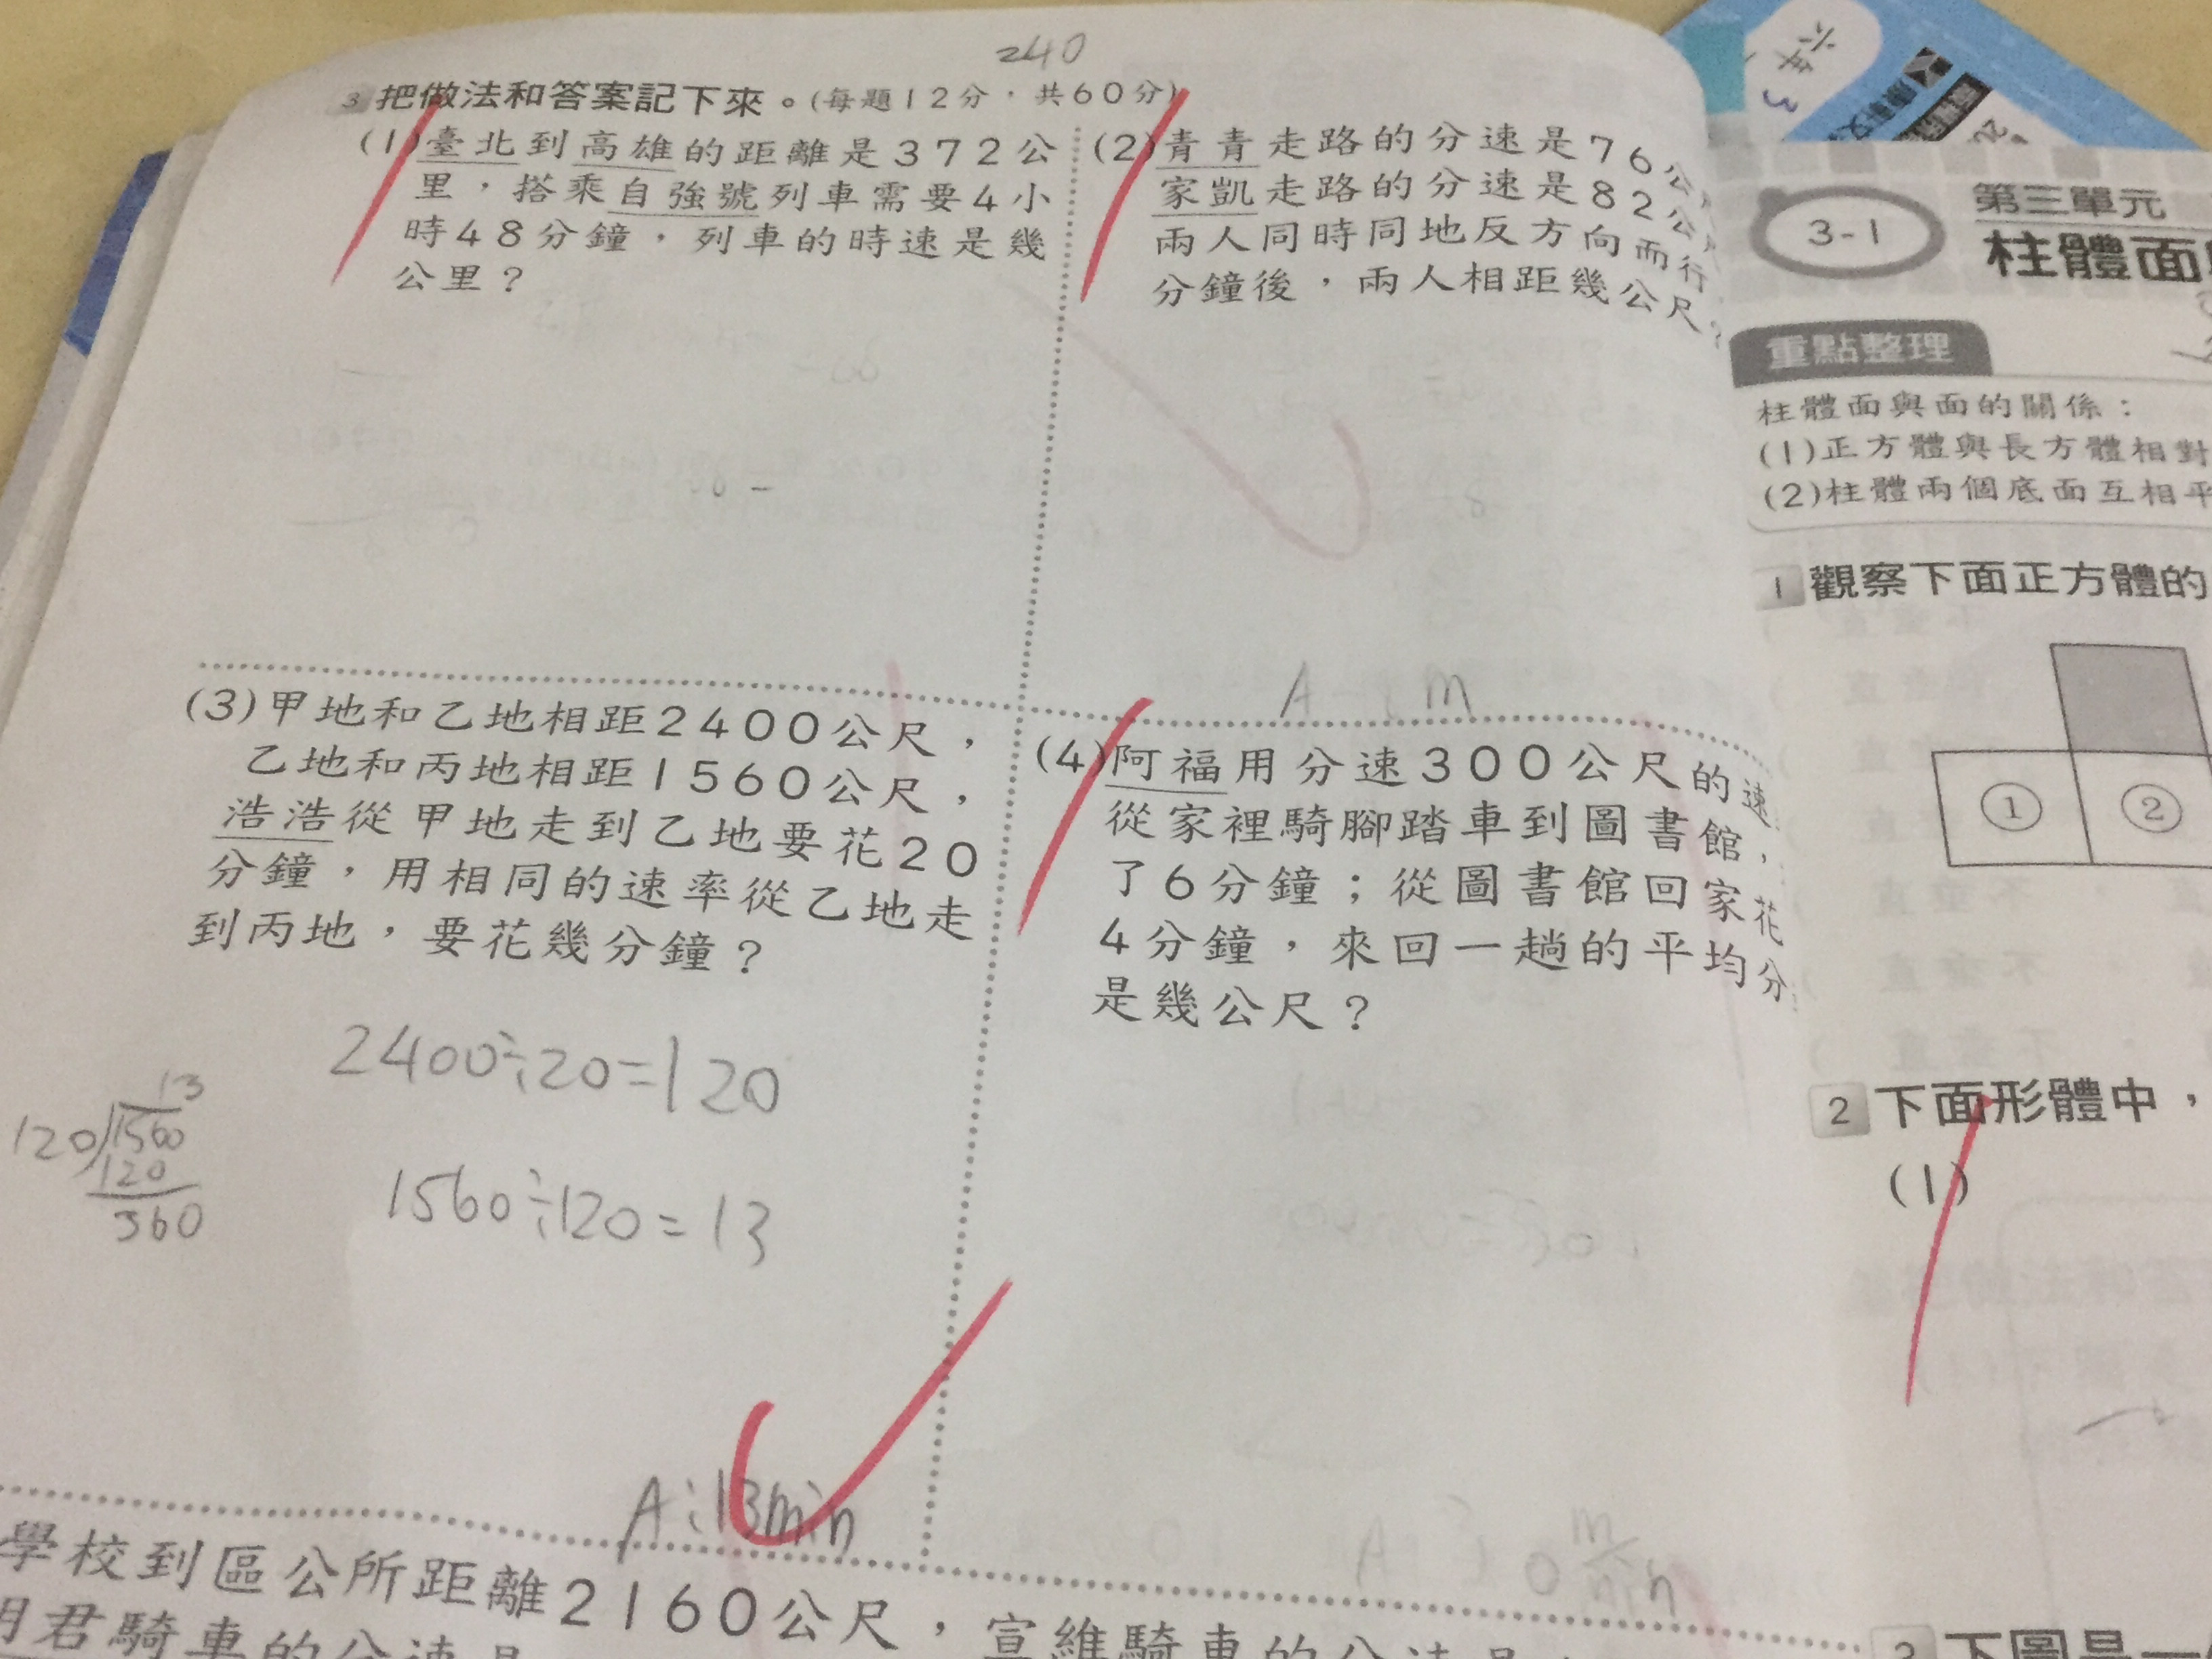 240
3 把做法和答案記下來。(每題12分，共60分)
(1)臺北到高雄的距離是372公
里，搭乘自強號列車需要4小
時48分鐘，列車的時速是幾
公里？
(2)青青走路的分速是76公
家凱走路的分速是82公
兩人同時同地反方向而行
分鐘後，兩人相距幾公尺？
A m
(3)甲地和乙地相距2400公尺，
乙地和丙地相距1560公尺，
浩浩從甲地走到乙地要花20
分鐘，用相同的速率從乙地走
到丙地，要花幾分鐘？
2400÷20=120
13
120)1560
120
360
1560÷120=13
A:13min
(4)阿福用分速300公尺的速
從家裡騎腳踏車到圖書館，
了6分鐘；從圖書館回家花
4分鐘，來回一趟的平均分
是幾公尺？
學校到區公所距離2160公尺，宣維騎車的分速是
君騎車的分速是
六年
3
3-1
第三單元
柱體面
重點整理
柱體面與面的關係：
(1)正方體與長方體相對
(2)柱體兩個底面互相平
1 觀察下面正方體的
①
②
2 下面形體中，
(1)
3 下圖是一